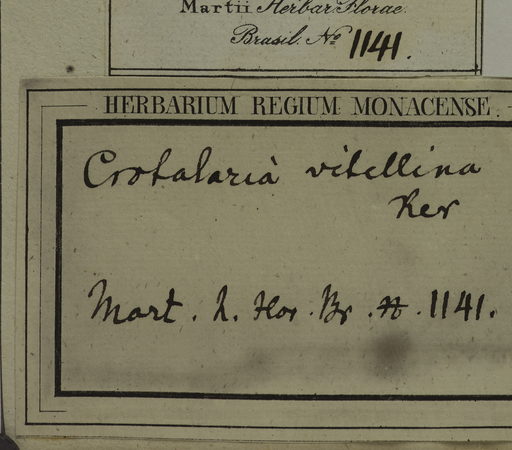 Martii Herbar. Florae
Brasil. No 1141.
HERBARIUM REGIUM MONACENSE.
Crotalaria vitellina
Ker
Mart. h. Flor. Br. #. 1141.